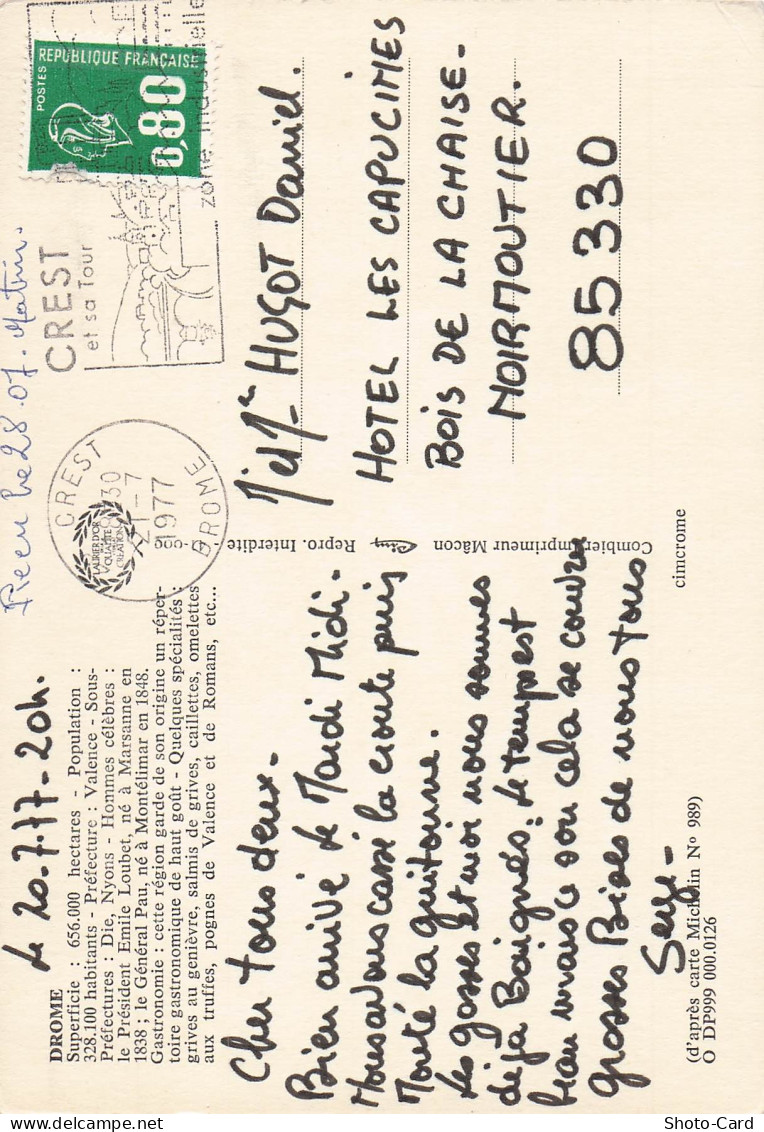 le 20.7.77-20h.
DROME
Superficie : 656.000 hectares - Population :
328.100 habitants - Préfecture : Valence - Sous-
Préfectures : Die, Nyons - Hommes célèbres :
le Président Emile Loubet, né à Marsanne en
1838 ; le Général Pau, né à Montélimar en 1848.
Gastronomie : cette région garde de son origine un réper-
toire gastronomique de haut goût - Quelques spécialités :
grives au genièvre, salmis de grives, caillettes, omelettes
aux truffes, pognes de Valence et de Romans, etc...
Cher tous deux -
Bien arrivé le Mardi Midi -
Nous avons cassé la croute puis
Monté la guitoune.
Les gosses et moi nous sommes
deja Baignés. le temps est
beau mais ce soir cela se couvre
grosses Bises de nous tous
Serge -
(d'après carte Michelin N° 989)
O DP999 000.0126
Combier Imprimeur Mâcon
Repro. Interdite
cimcrome
LAURIER D'OR
QUALITÉ
CREATION
CREST
21-7
1977
DROME
CREST
et sa Tour
zone industrielle
REPUBLIQUE FRANÇAISE
POSTES
0,80
le 28.07. Matin.
HUGOT Daniel.
HOTEL LES CAPUCINES
BOIS DE LA CHAISE.
NOIRMOUTIER.
85330
Shoto-Card